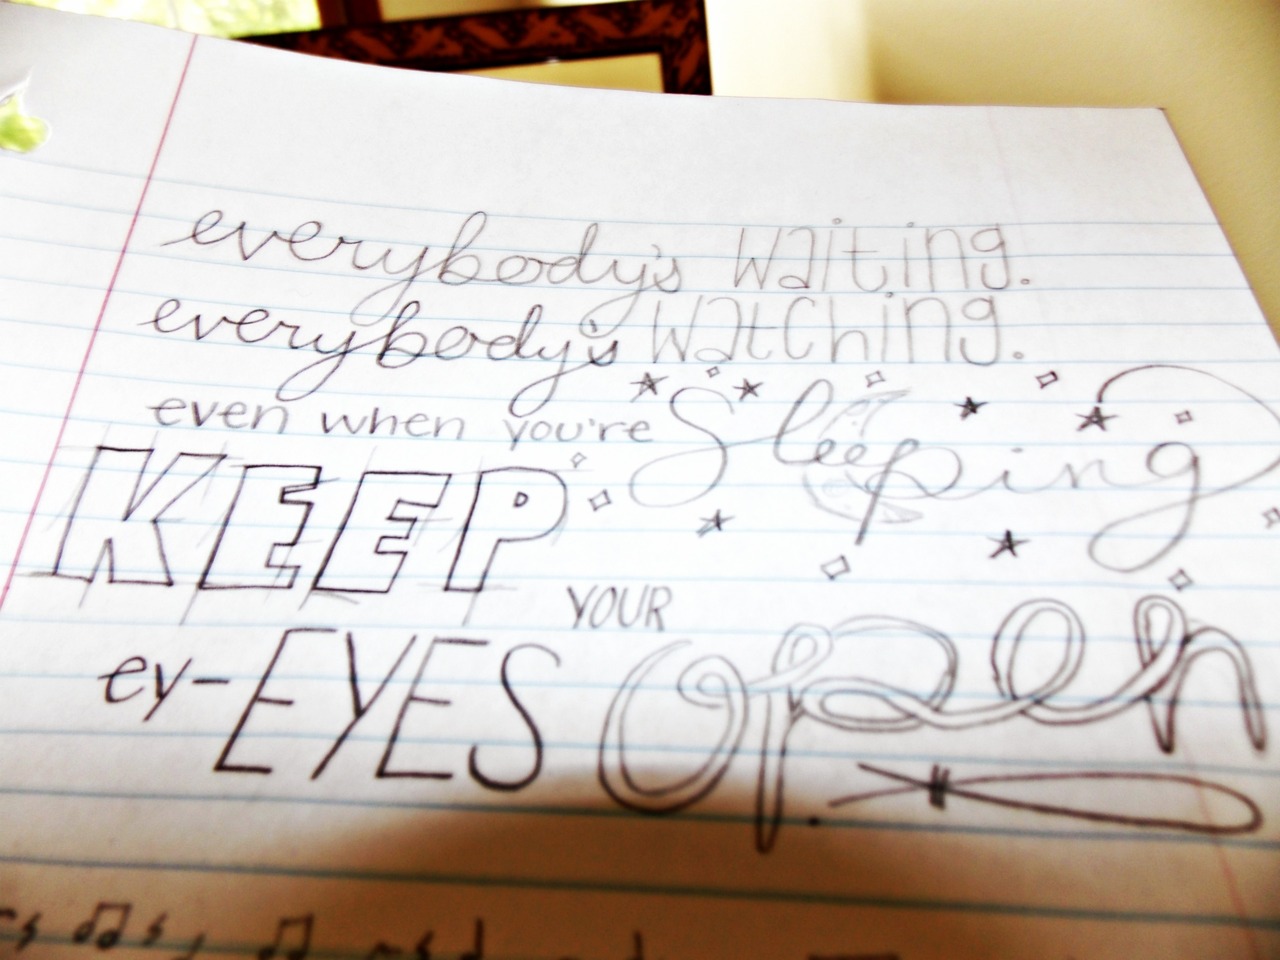 everybody's waiting.
everybody's watching.
even when you're sleeping
KEEP YOUR
ey-EYES open.